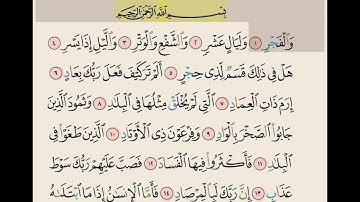 بِسْمِ اللَّهِ الرَّحْمَٰنِ الرَّحِيمِ
وَالْفَجْرِ ١ وَلَيَالٍ عَشْرٍ ٢ وَالشَّفْعِ وَالْوَتْرِ ٣ وَاللَّيْلِ إِذَا يَسْرِ ٤
هَلْ فِي ذَٰلِكَ قَسَمٌ لِّذِي حِجْرٍ ٥ أَلَمْ تَرَ كَيْفَ فَعَلَ رَبُّكَ بِعَادٍ ٦
إِرَمَ ذَاتِ الْعِمَادِ ٧ الَّتِي لَمْ يُخْلَقْ مِثْلُهَا فِي الْبِلَادِ ٨ وَثَمُودَ الَّذِينَ
جَابُوا الصَّخْرَ بِالْوَادِ ٩ وَفِرْعَوْنَ ذِي الْأَوْتَادِ ١٠ الَّذِينَ طَغَوْا فِي
الْبِلَادِ ١١ فَأَكْثَرُوا فِيهَا الْفَسَادَ ١٢ فَصَبَّ عَلَيْهِمْ رَبُّكَ سَوْطَ
عَذَابٍ ١٣ إِنَّ رَبَّكَ لَبِالْمِرْصَادِ ١٤ فَأَمَّا الْإِنسَانُ إِذَا مَا ابْتَلَاهُ